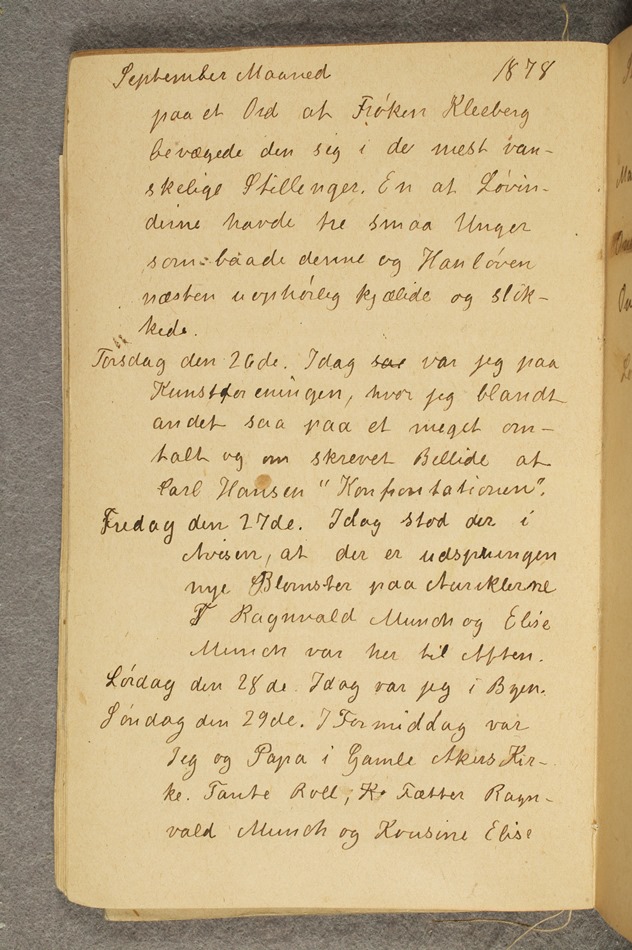 September Maaned 1878
paa et Ord af Frøken Kleeberg
bevægede den sig i de mest van-
skelige Stillenger. En af Løvin-
derne havde tre smaa Unger
som baade denne og Hanløven
næsten uophørlig kjælede og slik-
kede.
Torsdag den 26de. Idag sae var jeg paa
Kunstforeningen, hvor jeg blandt
andet saa paa et meget om-
talt og om skrevet Billide af
Carl Hansen "Konfrontationen".
Fredag den 27de. Idag stod der i
Avisen, at der er udsprungen
nye Blomster paa Auriklerne
F Ragnvald Munch og Elise
Munch var her til Aften.
Lørdag den 28de. Idag var jeg i Byen.
Søndag den 29de. I Formiddag var
Jeg og Papa i Gamle Akers Kir-
ke. Tante Roll, K Fætter Ragn-
vald Munch og Kousine Elise